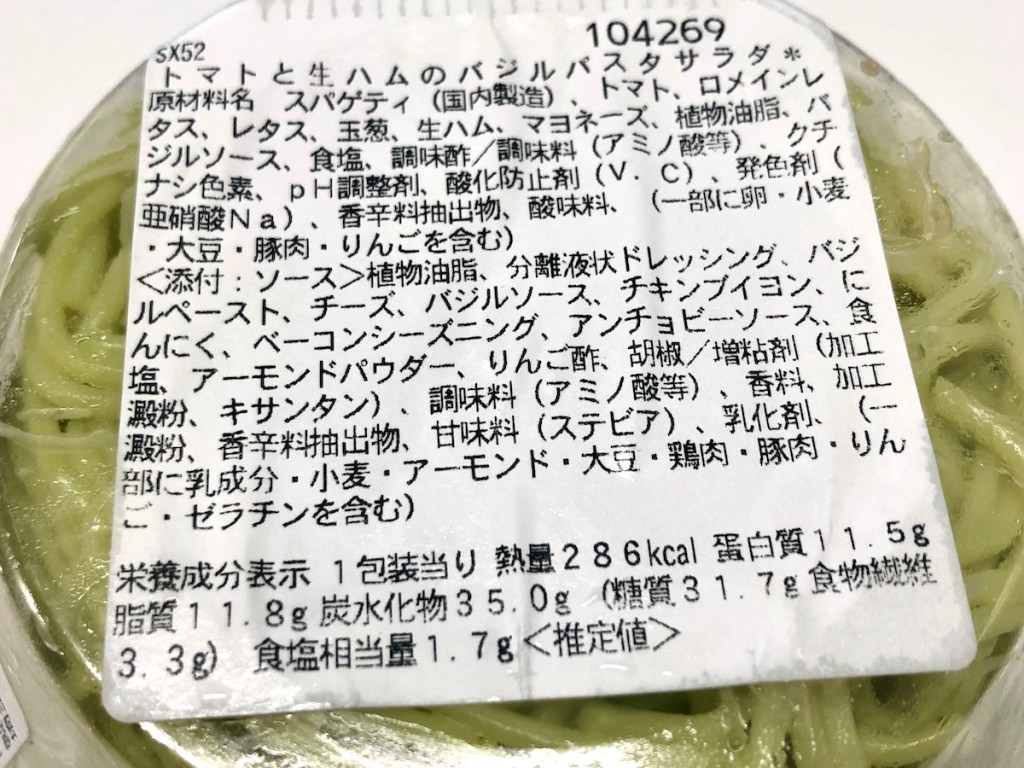 104269
SX52
トマトと生ハムのバジルパスタサラダ*
原材料名　スパゲティ（国内製造）、トマト、ロメインレ
タス、レタス、玉葱、生ハム、マヨネーズ、植物油脂、バ
ジルソース、食塩、調味酢／調味料（アミノ酸等）、クチ
ナシ色素、pH調整剤、酸化防止剤（V．C）、発色剤（
亜硝酸Na）、香辛料抽出物、酸味料、（一部に卵・小麦
・大豆・豚肉・りんごを含む）
＜添付：ソース＞植物油脂、分離液状ドレッシング、バジ
ルペースト、チーズ、バジルソース、チキンブイヨン、に
んにく、ベーコンシーズニング、アンチョビーソース、食
塩、アーモンドパウダー、りんご酢、胡椒／増粘剤（加工
澱粉、キサンタン）、調味料（アミノ酸等）、香料、加工
澱粉、香辛料抽出物、甘味料（ステビア）、乳化剤、（一
部に乳成分・小麦・アーモンド・大豆・鶏肉・豚肉・りん
ご・ゼラチンを含む）
栄養成分表示　1包装当り　熱量286kcal　蛋白質11.5g
脂質11.8g　炭水化物35.0g（糖質31.7g　食物繊維
3.3g）　食塩相当量1.7g＜推定値＞